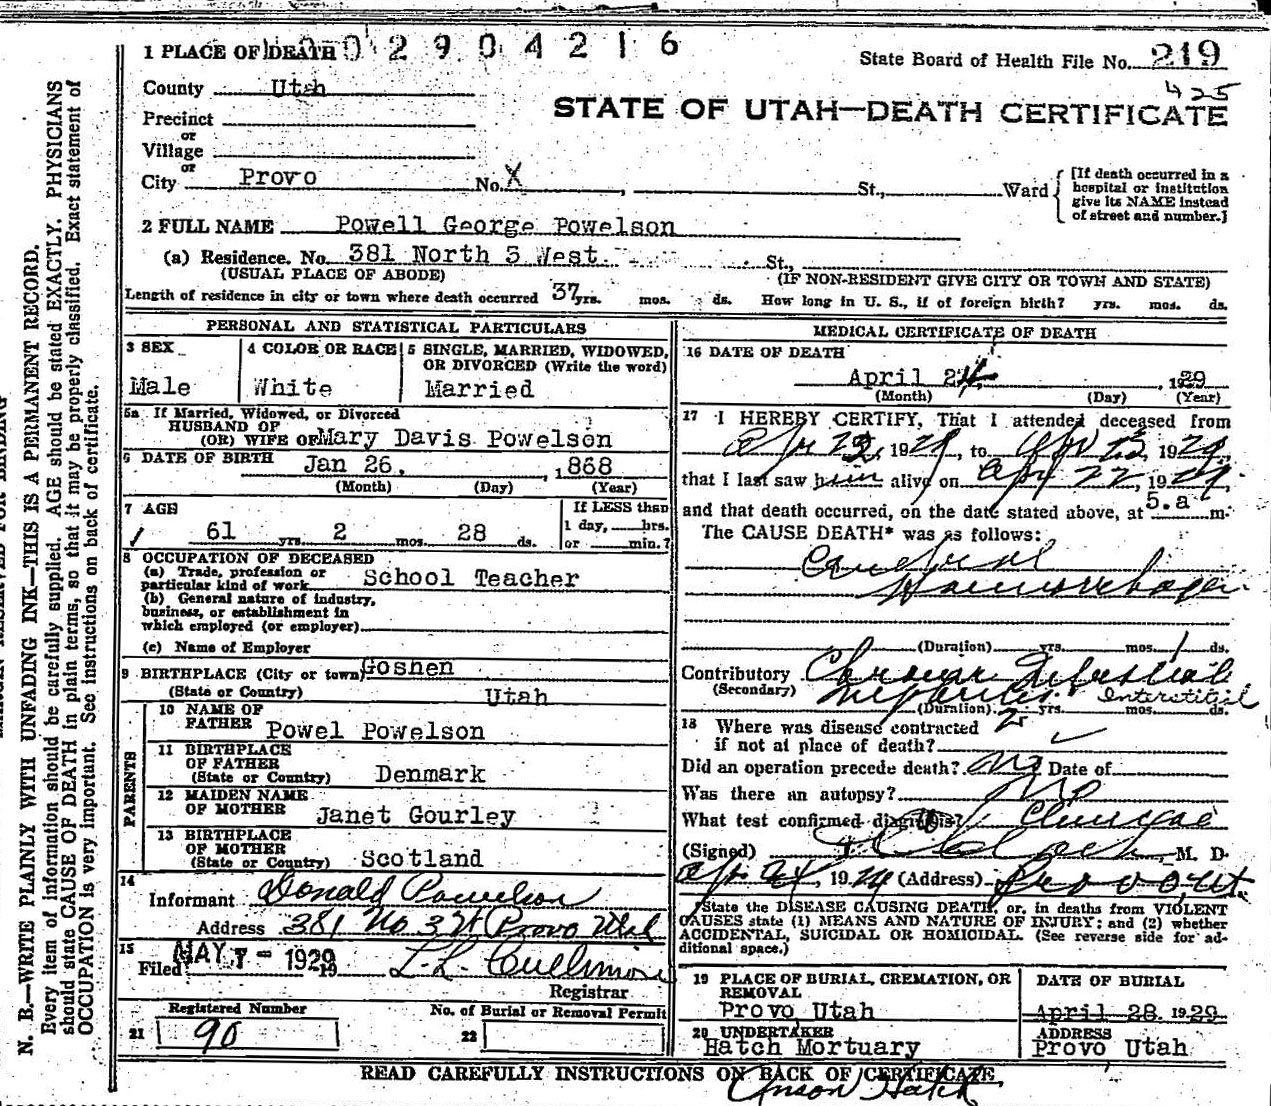 1 PLACE OF DEATH 002904216
State Board of Health File No. 219
425
County Utah
STATE OF UTAH—DEATH CERTIFICATE
Precinct
or
Village
or
City Provo No. X St., Ward
[If death occurred in a
hospital or institution
give its NAME instead
of street and number.]
2 FULL NAME Powell George Powelson
(a) Residence. No. 381 North 3 West. St.,
(USUAL PLACE OF ABODE) (IF NON-RESIDENT GIVE CITY OR TOWN AND STATE)
Length of residence in city or town where death occurred 37 yrs. mos. ds. How long in U. S., if of foreign birth? yrs. mos. ds.
PERSONAL AND STATISTICAL PARTICULARS
3 SEX
Male
4 COLOR OR RACE
White
5 SINGLE, MARRIED, WIDOWED,
OR DIVORCED (Write the word)
Married
5a If Married, Widowed, or Divorced
HUSBAND OF
(OR) WIFE OF Mary Davis Powelson
6 DATE OF BIRTH Jan 26, , 1868
(Month) (Day) (Year)
7 AGE
61 yrs. 2 mos. 28 ds.
If LESS than
1 day, hrs.
or min.?
8 OCCUPATION OF DECEASED
(a) Trade, profession or
particular kind of work School Teacher
(b) General nature of industry,
business, or establishment in
which employed (or employer)
(c) Name of Employer
9 BIRTHPLACE (City or town) Goshen
(State or Country) Utah
PARENTS
10 NAME OF
FATHER Powel Powelson
11 BIRTHPLACE
OF FATHER
(State or Country) Denmark
12 MAIDEN NAME
OF MOTHER Janet Gourley
13 BIRTHPLACE
OF MOTHER
(State or Country) Scotland
14
Informant Donald Powelson
Address 381 No. 3 W Provo Utah
15
Filed MAY 7 - 1929 19 L. L. Cullimore
Registrar
Registered Number
21 90
No. of Burial or Removal Permit
22
MEDICAL CERTIFICATE OF DEATH
16 DATE OF DEATH
April 24, , 1929
(Month) (Day) (Year)
17 I HEREBY CERTIFY, That I attended deceased from
Apr 23, 1929, to Apr 23, 1929,
that I last saw him alive on Apr 22, 1929,
and that death occurred, on the date stated above, at 5.a m.
The CAUSE DEATH* was as follows:
Cerebral
Haemorrhage
(Duration) yrs. mos. 1 ds.
Contributory Chronic Interstitial
(Secondary) nephritis. Interstitial
(Duration) 2 yrs. mos. ds.
18 Where was disease contracted
if not at place of death?
Did an operation precede death? no Date of
Was there an autopsy? No
What test confirmed diagnosis? Clinical
(Signed) , M. D.
Apr 24, 1929 (Address) Provo Ut.
*State the DISEASE CAUSING DEATH, or, in deaths from VIOLENT
CAUSES state (1) MEANS AND NATURE OF INJURY; and (2) whether
ACCIDENTAL, SUICIDAL OR HOMICIDAL. (See reverse side for ad-
ditional space.)
19 PLACE OF BURIAL, CREMATION, OR
REMOVAL
Provo Utah
DATE OF BURIAL
April 28 1929
20 UNDERTAKER
Hatch Mortuary
ADDRESS
Provo Utah
READ CAREFULLY INSTRUCTIONS ON BACK OF CERTIFICATE
Anson Hatch
N. B.—WRITE PLAINLY WITH UNFADING INK—THIS IS A PERMANENT RECORD.
Every item of information should be carefully supplied. AGE should be stated EXACTLY. PHYSICIANS
should state CAUSE OF DEATH in plain terms, so that it may be properly classified. Exact statement of
OCCUPATION is very important. See instructions on back of certificate.